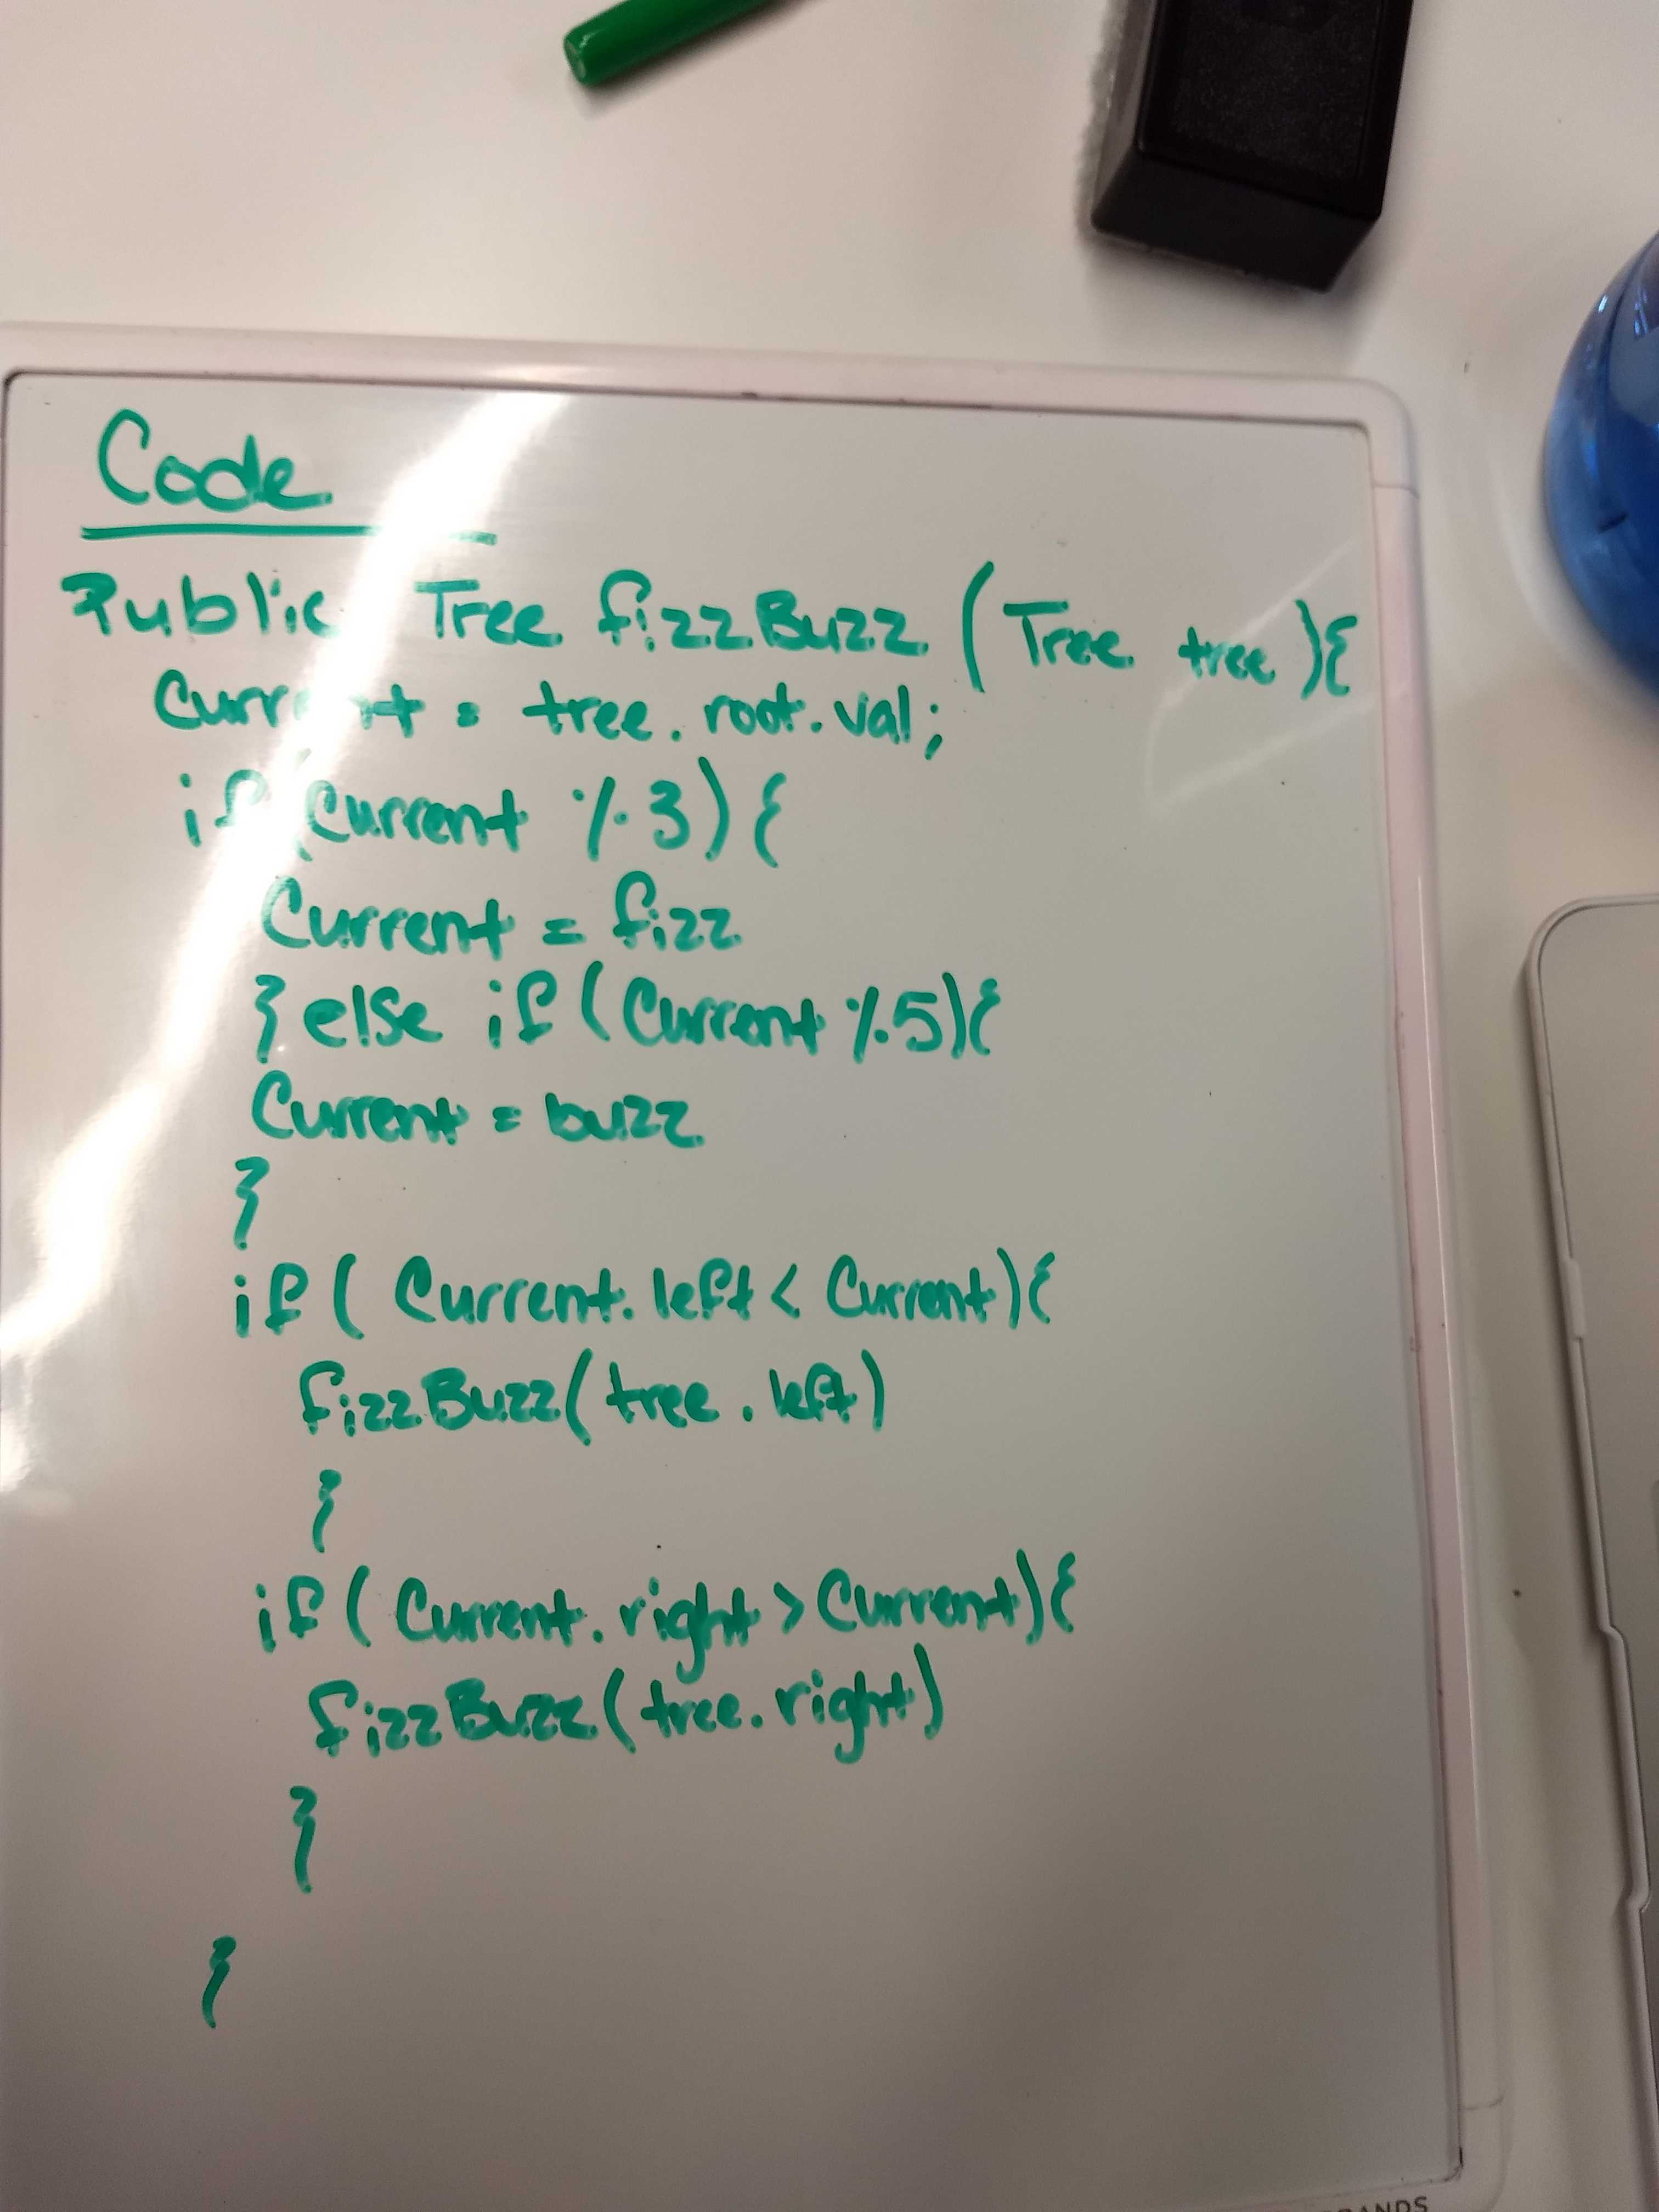 Code
Public Tree fizzBuzz (Tree tree){
= tree.root.val;
if (Current % 3){
Current = fizz
} else if (Current % 5){
Current = buzz
}
if ( Current.left < Current){
fizzBuzz(tree.left)
}
if ( Current.right > Current){
fizzBuzz(tree.right)
}
}